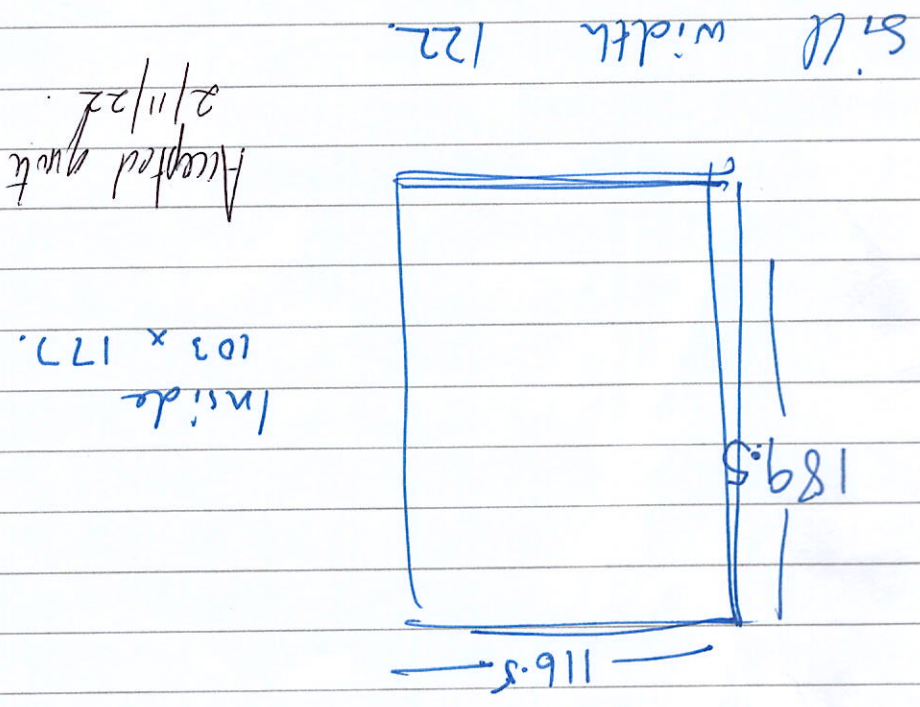 116.5
189.5
Inside
103 x 177.
Accepted quote
2/11/22.
Sill width 122.